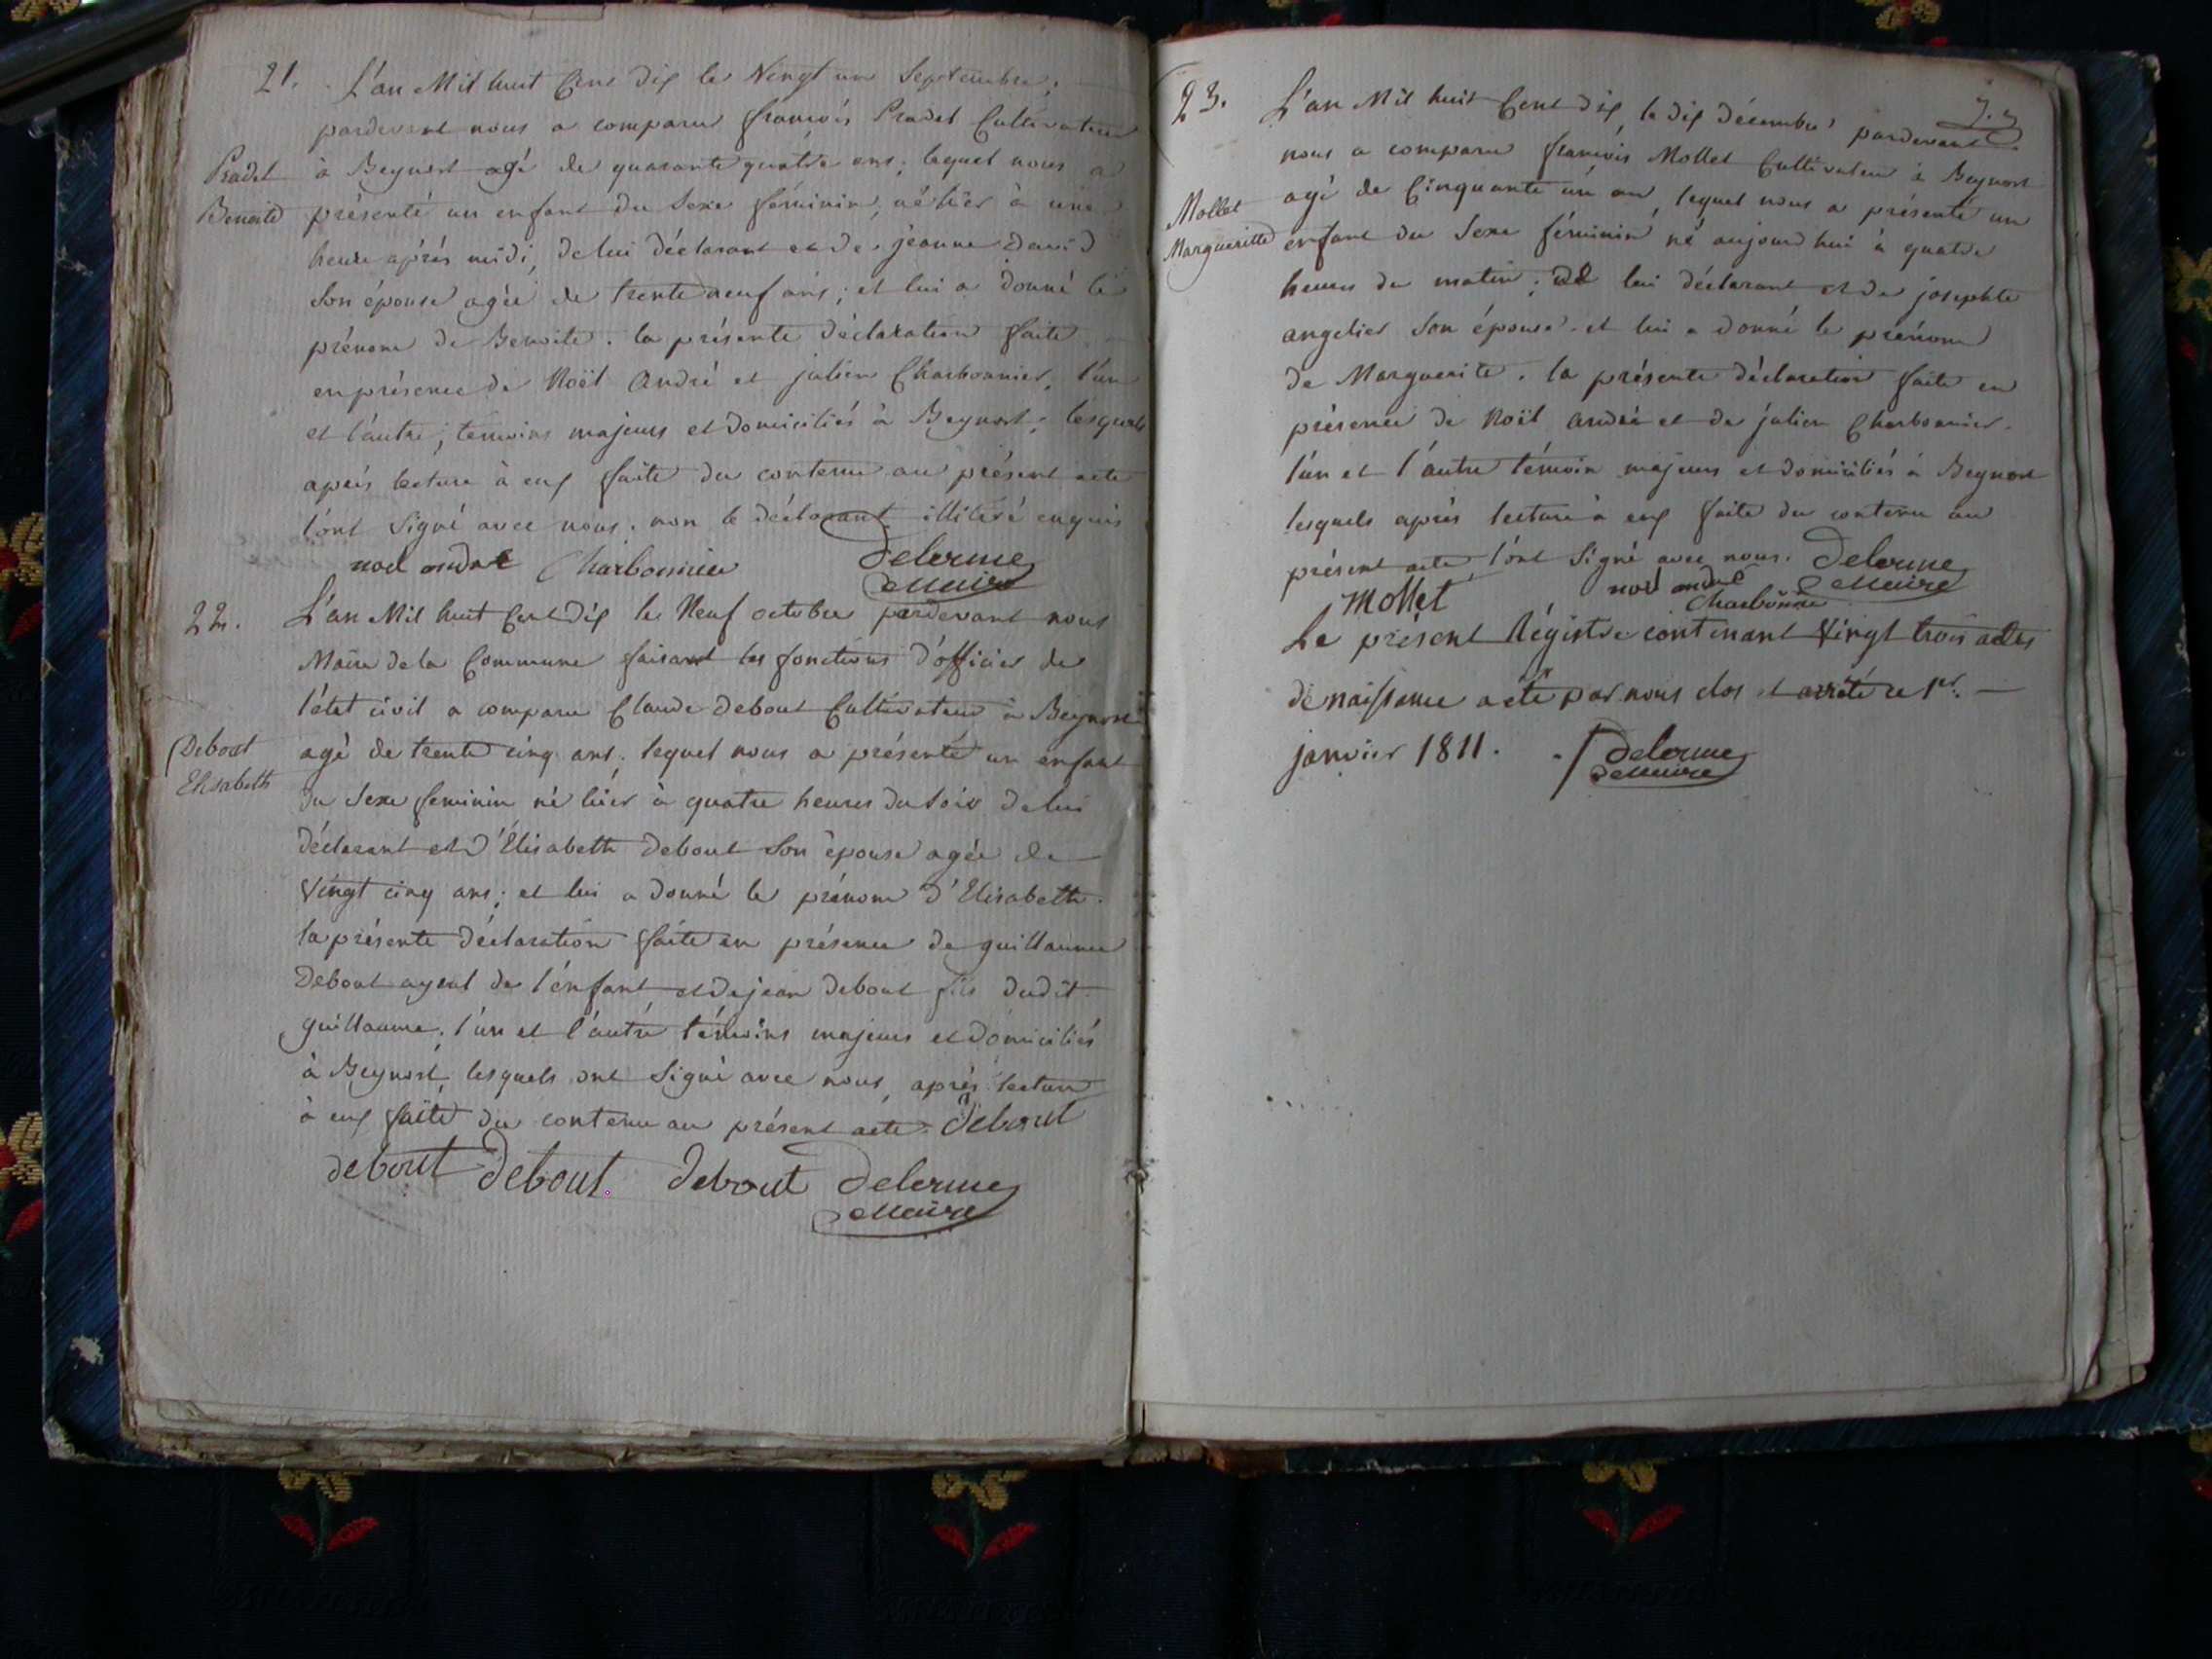 21. L'an Mil huit Cent dix le Vingt un Septembre;
pardevant nous a comparu françois Pradel Cultivateur
Pradel
Benoite
à Beynost agé de quarante quatre ans; lequel nous a
présenté un enfant du Sexe féminin, né hiér à une
heure aprés midi, de lui déclarant et de jeanne David
Son épouse agée de trente neuf ans; et lui a donné le
prénom de Benoite. la présente déclaration faite
en présence de Noël André et julien Charbonnier, l'un
et l'autre, témoins majeurs et domiciliés à Beynost; lesquels
aprés lecture à eux faite du contenu au présent acte
l'ont Signé avec nous. non le déclarant illitéré enquis
noel andre Charbonnier Delorme
Maire
22. L'an Mil huit Cent dix le Neuf octobre pardevant nous
Maire de la Commune faisant les fonctions d'officier de
l'état civil a comparu Claude debout Cultivateur à Beynost
Debout
Elisabeth
agé de trente cinq ans, lequel nous a présenté un enfant
du Sexe feminin né hiér à quatre heures du Soir de lui
déclarant et d'Élisabeth debout Son épouse agée de
Vingt cinq ans; et lui a donné le prénom d'Elisabeth.
la présente déclaration faite en présence de guillaume
Debout ayeul de l'énfant et de jean debout fils dudit
guillaume, l'un et l'autre témoins majeurs et domiciliés
à Beynost, lesquels ont Signé avec nous, aprés lecture
à eux faite du contenu au présent acte. debout
debout debout. debout Delorme
Maire
23. L'an Mil huit Cent dix, le dix décembre pardevant
nous a comparu françois Mollet Cultivateur à Beynost
Mollet
Marguerite
agé de Cinquante un an, lequel nous a présenté un
enfant du Sexe féminin né aujourd'hui à quatre
heures du matin; de lui déclarant et de josephte
angelier Son épouse. et lui a donné le prénom
de Marguerite. la présente déclaration faite en
présence de Noël André et de julien Charbonnier.
l'un et l'autre témoin majeurs et domiciliés à Beynost
lesquels aprés lecture à eux faite du contenu au
présent acte, l'ont Signé avec nous. Delorme
Maire
Mollet noel andre
Charbonnier
Le présent Régistre contenant Vingt trois actes
de naissance a été par nous clos et arrété ce 1er. —
janvier 1811. Delorme
Maire